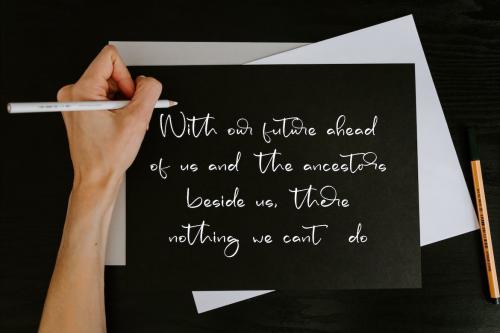 With our future ahead
of us and the ancestors
beside us, there
nothing we cant do